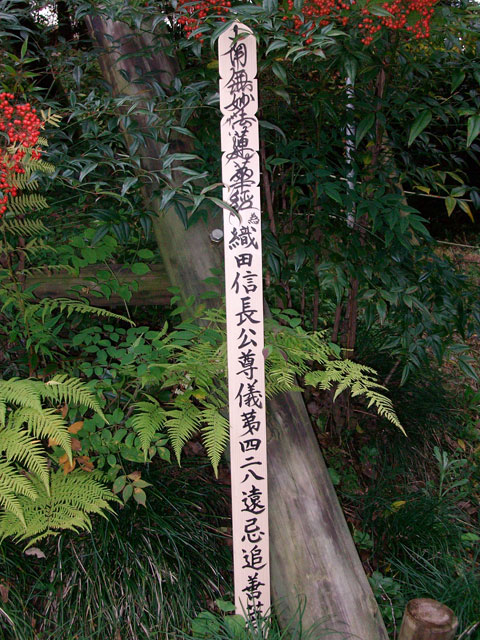 南無妙法蓮華経
為織田信長公尊儀第四二八遠忌追善菩